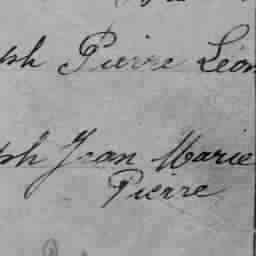 ph Pierre Léon
ph Jean Marie
Pierre